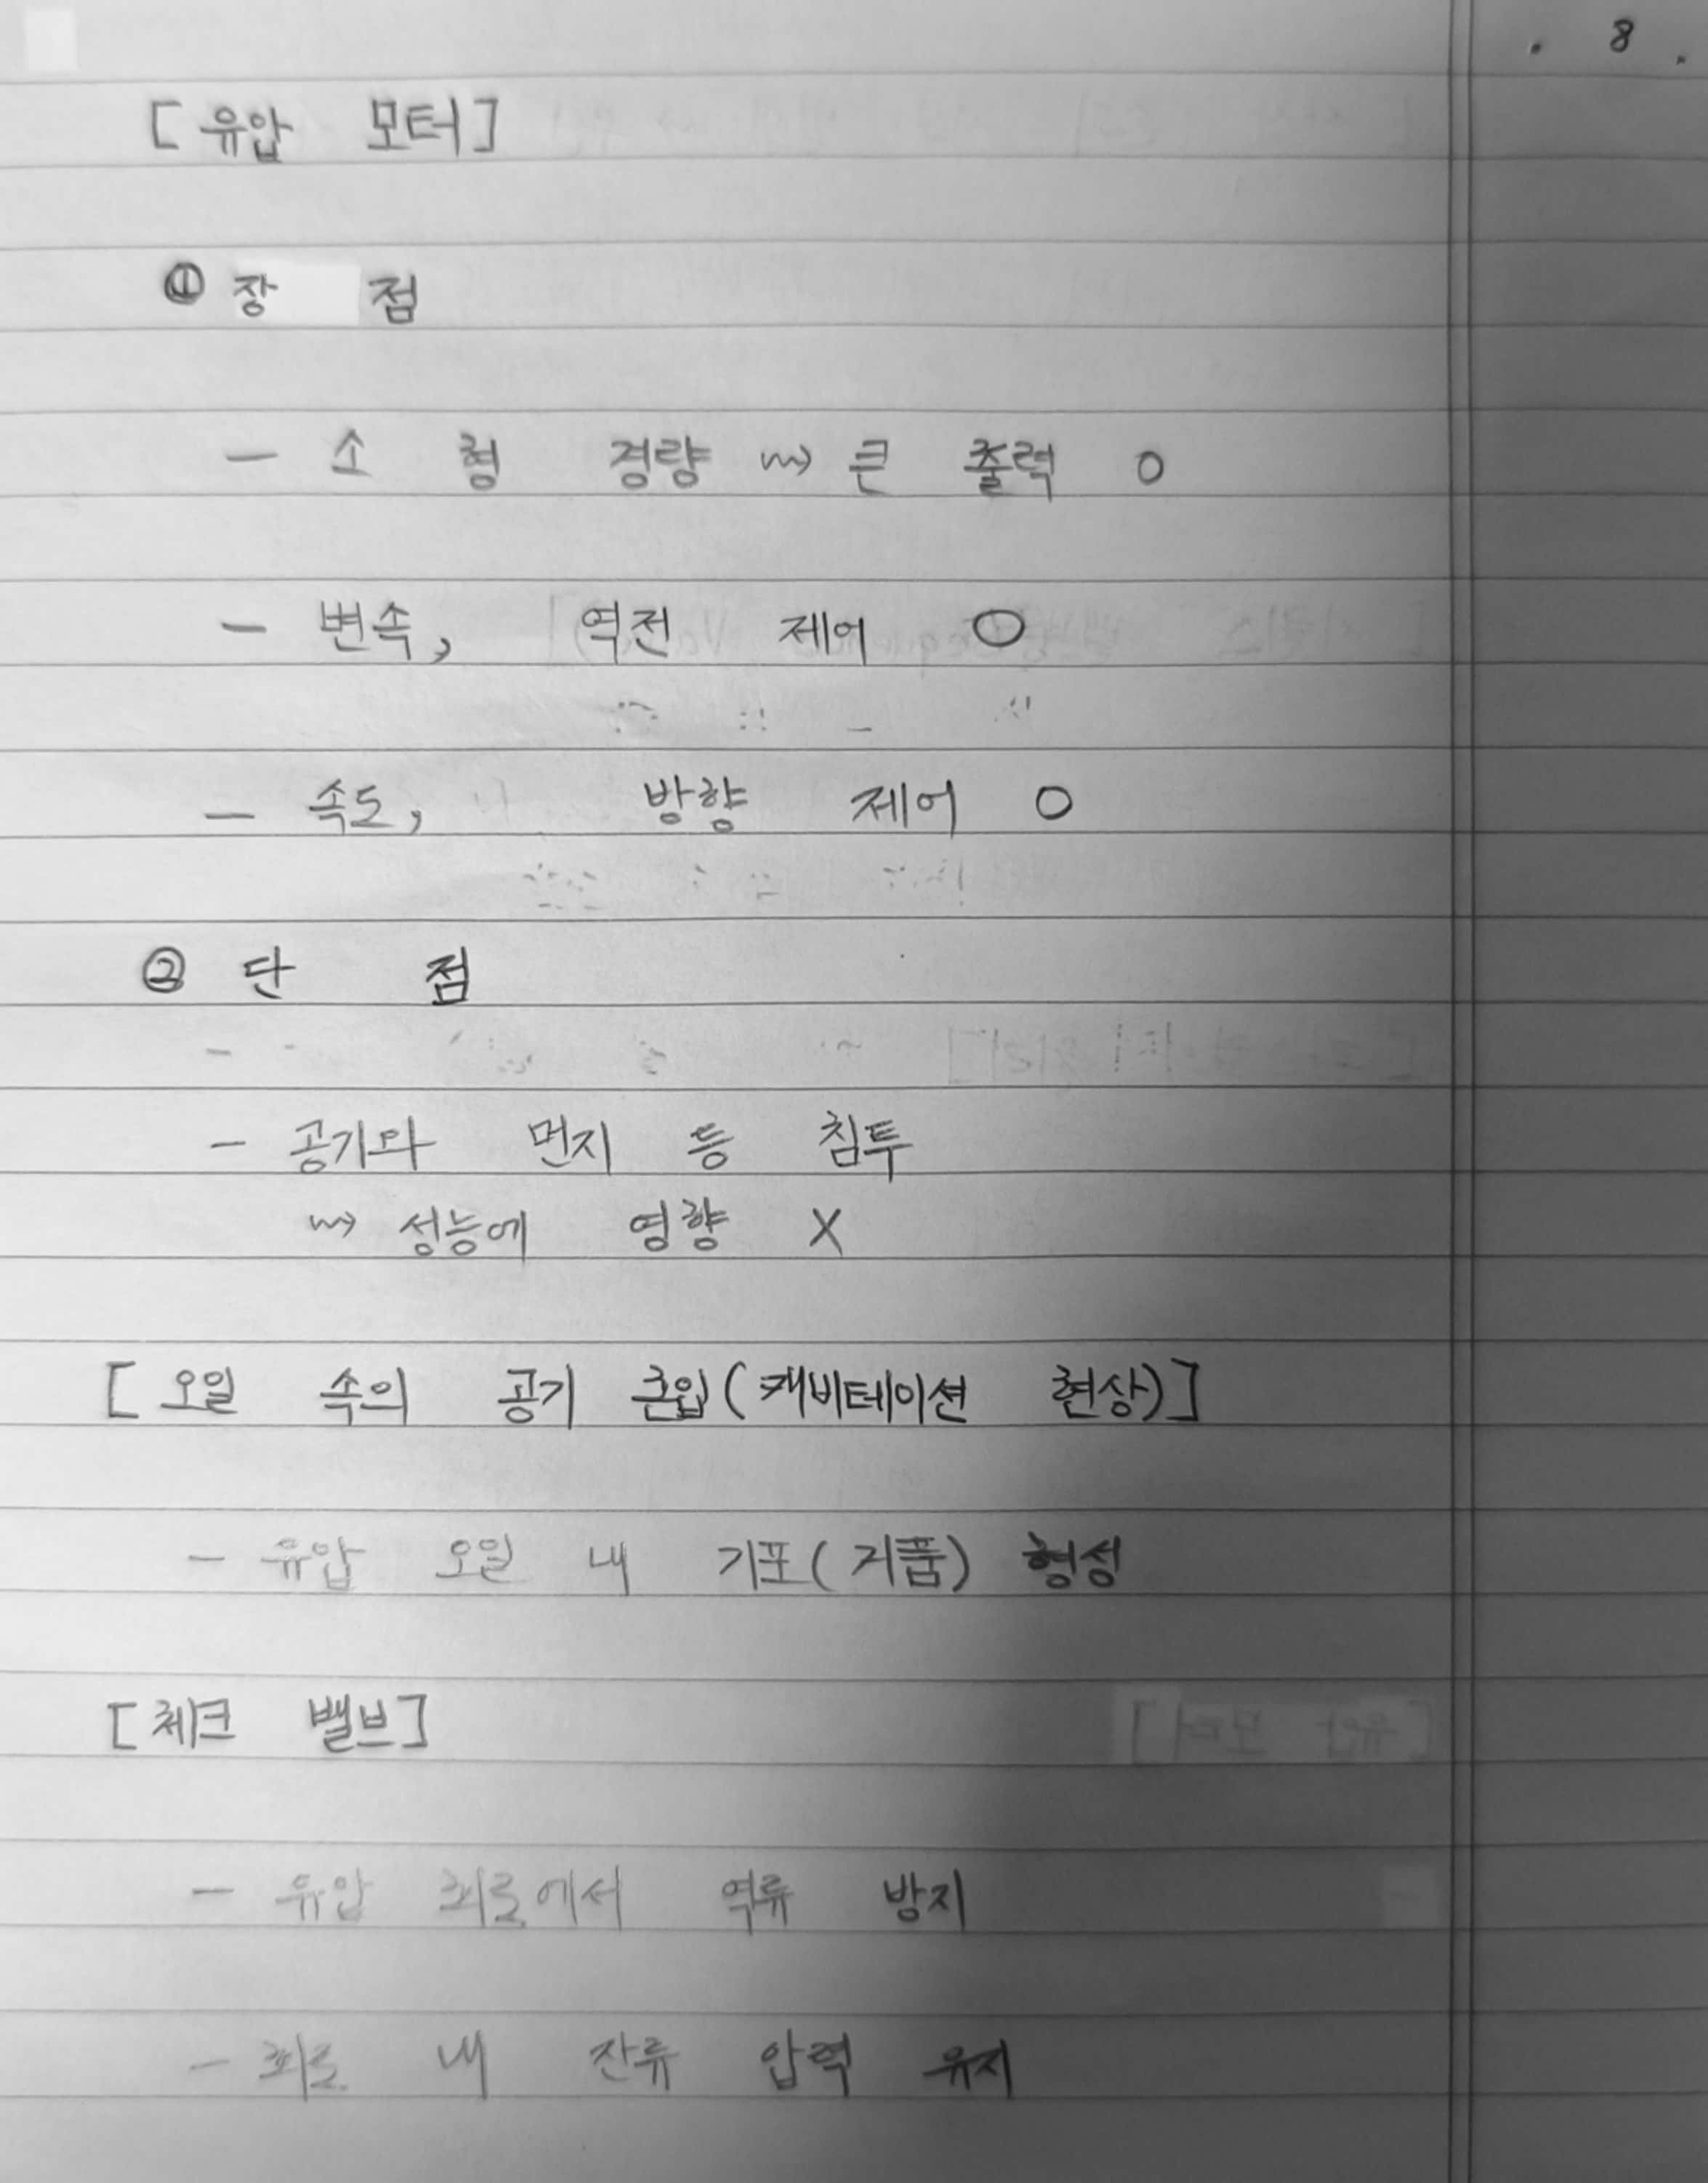 . 8 .
[유압 모터]
① 장 점
- 소 형 경량 ⇝ 큰 출력 O
- 변속, 역전 제어 O
- 속도, 방향 제어 O
② 단 점
- 공기와 먼지 등 침투
⇝ 성능에 영향 X
[오일 속의 공기 혼입(캐비테이션 현상)]
- 유압 오일 내 기포(거품) 형성
[체크 밸브]
- 유압 회로에서 역류 방지
- 회로 내 잔류 압력 유지